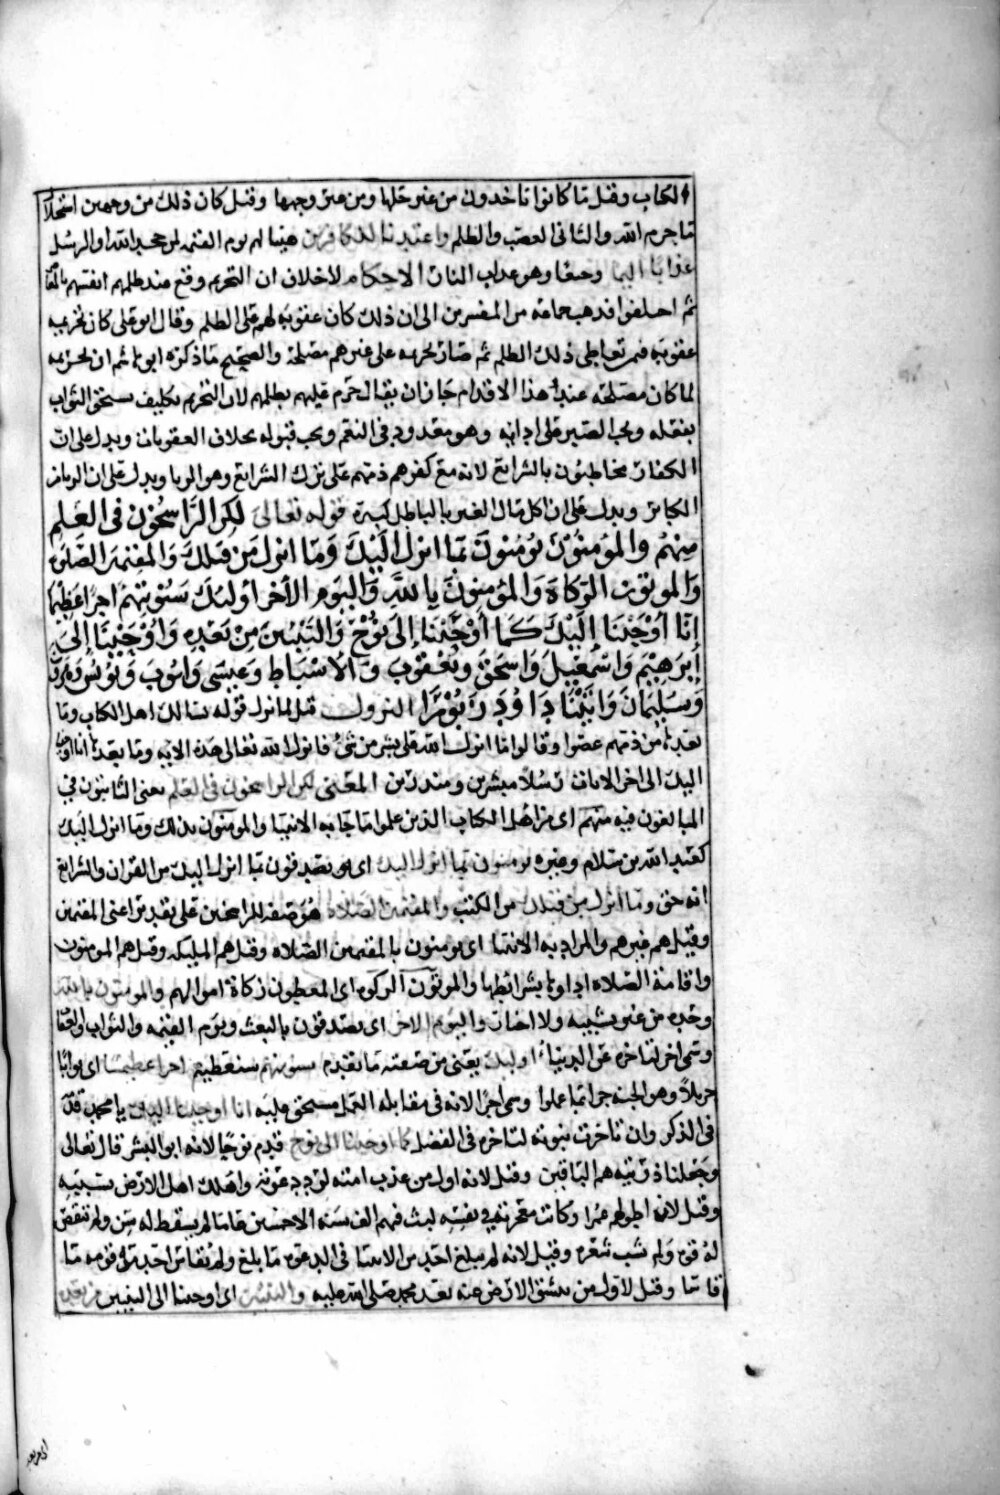 الكتاب وقيل ما كانوا ياخدون من غير حلها ومن غير وجهها وقيل كان ذلك من وجهين استحلال
ما حرم الله والثاني الغصب والظلم واعتدنا للكافرين هيانا لهم يوم القيمه لمن جحد الله او الرسل
عذابا اليما وجيعا وهو عداب النار الاحكام لا خلاف ان التحريم وقع عند ظلمهم انفسهم بالمعا
ثم اختلفوا فذهب جماعه من المفسرين الى ان ذلك كان عقوبه لهم على الظلم وقال ابو على كان تحريمه
عقوبه فيمن تعاطى ذلك الظلم ثم صار تحريمه على غيرهم مصلحة والصحيح ما ذكره ابو ها ثم ان تحريمه
لما كان مصلحه عند هذا الاقدام جاز ان يقال حرم عليهم بظلمهم لان التحريم تكليف يستحق الثواب
بفعله ويجب الصبر على ادايه وهو معدود في النعم ويجب قبوله بخلاف العقوبات ويدل على ان
الكفار مخاطبون بالشرايع لانه مع كفرهم ذمهم على ترك الشرايع وهو الربا ويدل على ان الربا من
الكبائر ويدل على ان اكل مال الغير بالباطل كبيرة قوله تعالى لكن الراسخون في العلم
منهم والمؤمنون يومنون بما انزل اليك وما انزل من قبلك والمقيمين الصلوة
والموتون الزكاة والمؤمنون بالله واليوم الاخر اولئك سنؤتيهم اجرا عظيما
إنا أوحينا إليك كما أوحينا إلى نوح والنبيين من بعده وأوحينا إلى
إبرهيم واسمعيل واسحق ويعقوب والاسباط وعيسى وايوب ويونس وهرون
وسليمان واتينا داود زبورا النزول قيل لما نزل قوله يسالك اهل الكتاب وما
بعده من ذمهم غضبوا وقالوا ما انزل الله على بشر من شئ فانزل الله تعالى هذه الايه وما بعدها انا اوحينا
اليك الى اخر الايات رسلا مبشرين ومنذرين المعنى لكن الراسخون في العلم يعني الثابتون في
المبالغون فيه منهم اي من اهل الكتاب الذين علموا ما جا به الانبيا والمومنون بذلك وما انزل اليك
كعبد الله بن سلام وغيره يومنون بما انزل اليك اي يصدقون بما انزل اليك من القران والشرايع
انه حق وما انزل من قبلك من الكتب والمقيمين الصلاه هو صفه للراسخين على تقدير اعني المقيمين
وقيل هم غيرهم والمراد به الانبيا اي يومنون بالمقيمين الصلاه وقيل هم الملئكه وقيل هم المومنون
واقامة الصلاه اداوها بشرائطها والموتون الزكوه اي المعطون زكاة اموالهم والمومنون بالله
وحده من غير تشبيه ولا احاد واليوم الاخر اي يصدقون بالبعث ويوم القيمه والثواب والعقاب
وسمى اخر لتاخره عن الدنيا اولئك يعني من صفته ما تقدم سنوتيهم سنعطيهم اجرا عظيما اي ثوابا
جزيلا وهو الجنه جزا بما عملوا وسمى اجرا لانه في مقابله العمل مستحق عليه انا اوحينا اليك يا محمد قدم
في الذكر وان تاخرت نبوته لتاخره في الفضل كما اوحينا الى نوح قدم نوحا لانه ابو البشر قال تعالى
وجعلنا ذريته هم الباقين وقيل لانه اول من عذب امته لرد دعوته واهلك اهل الارض بسببه
وقيل لانه اطولهم عمرا وكانت معجزته في نفسه لبث فيهم الف سنه الا خمسين عاما لم يسقط له سن ولم تنقص
له قوة ولم تشب شعره وقيل لانه لم يبلغ احد من الانبيا في الدعوه ما بلغ ولم يقاس احد من قومه ما
قاسا وقيل لاول من تنشق الارض عنه بعد محمد صلى الله عليه والنبيين اي اوحينا الى النبيين من بعده